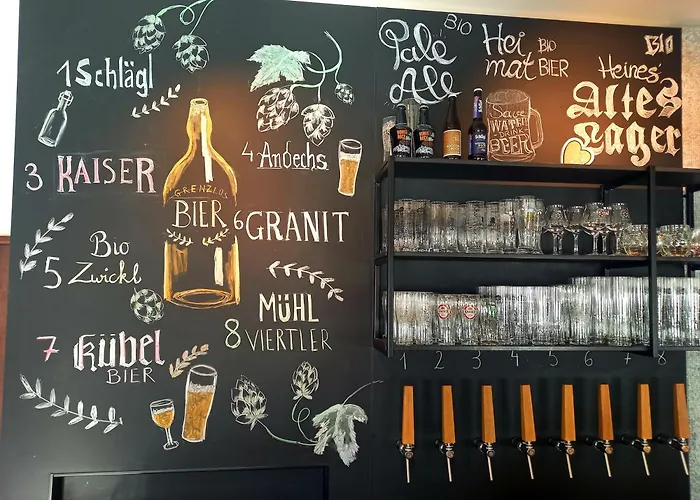 1 Schlägl
3 KAISER
GRENZLOS
BIER
4 Andechs
6 GRANIT
Bio
5 Zwickl
MÜHL
8 VIERTLER
7 Kübel
BIER
Pale BIO
Ale
Hei BIO
mat BIER
Save
WATER
DRINK
BEER
BIO
Heines'
Altes
Lager
1 2 3 4 5 6 7 8